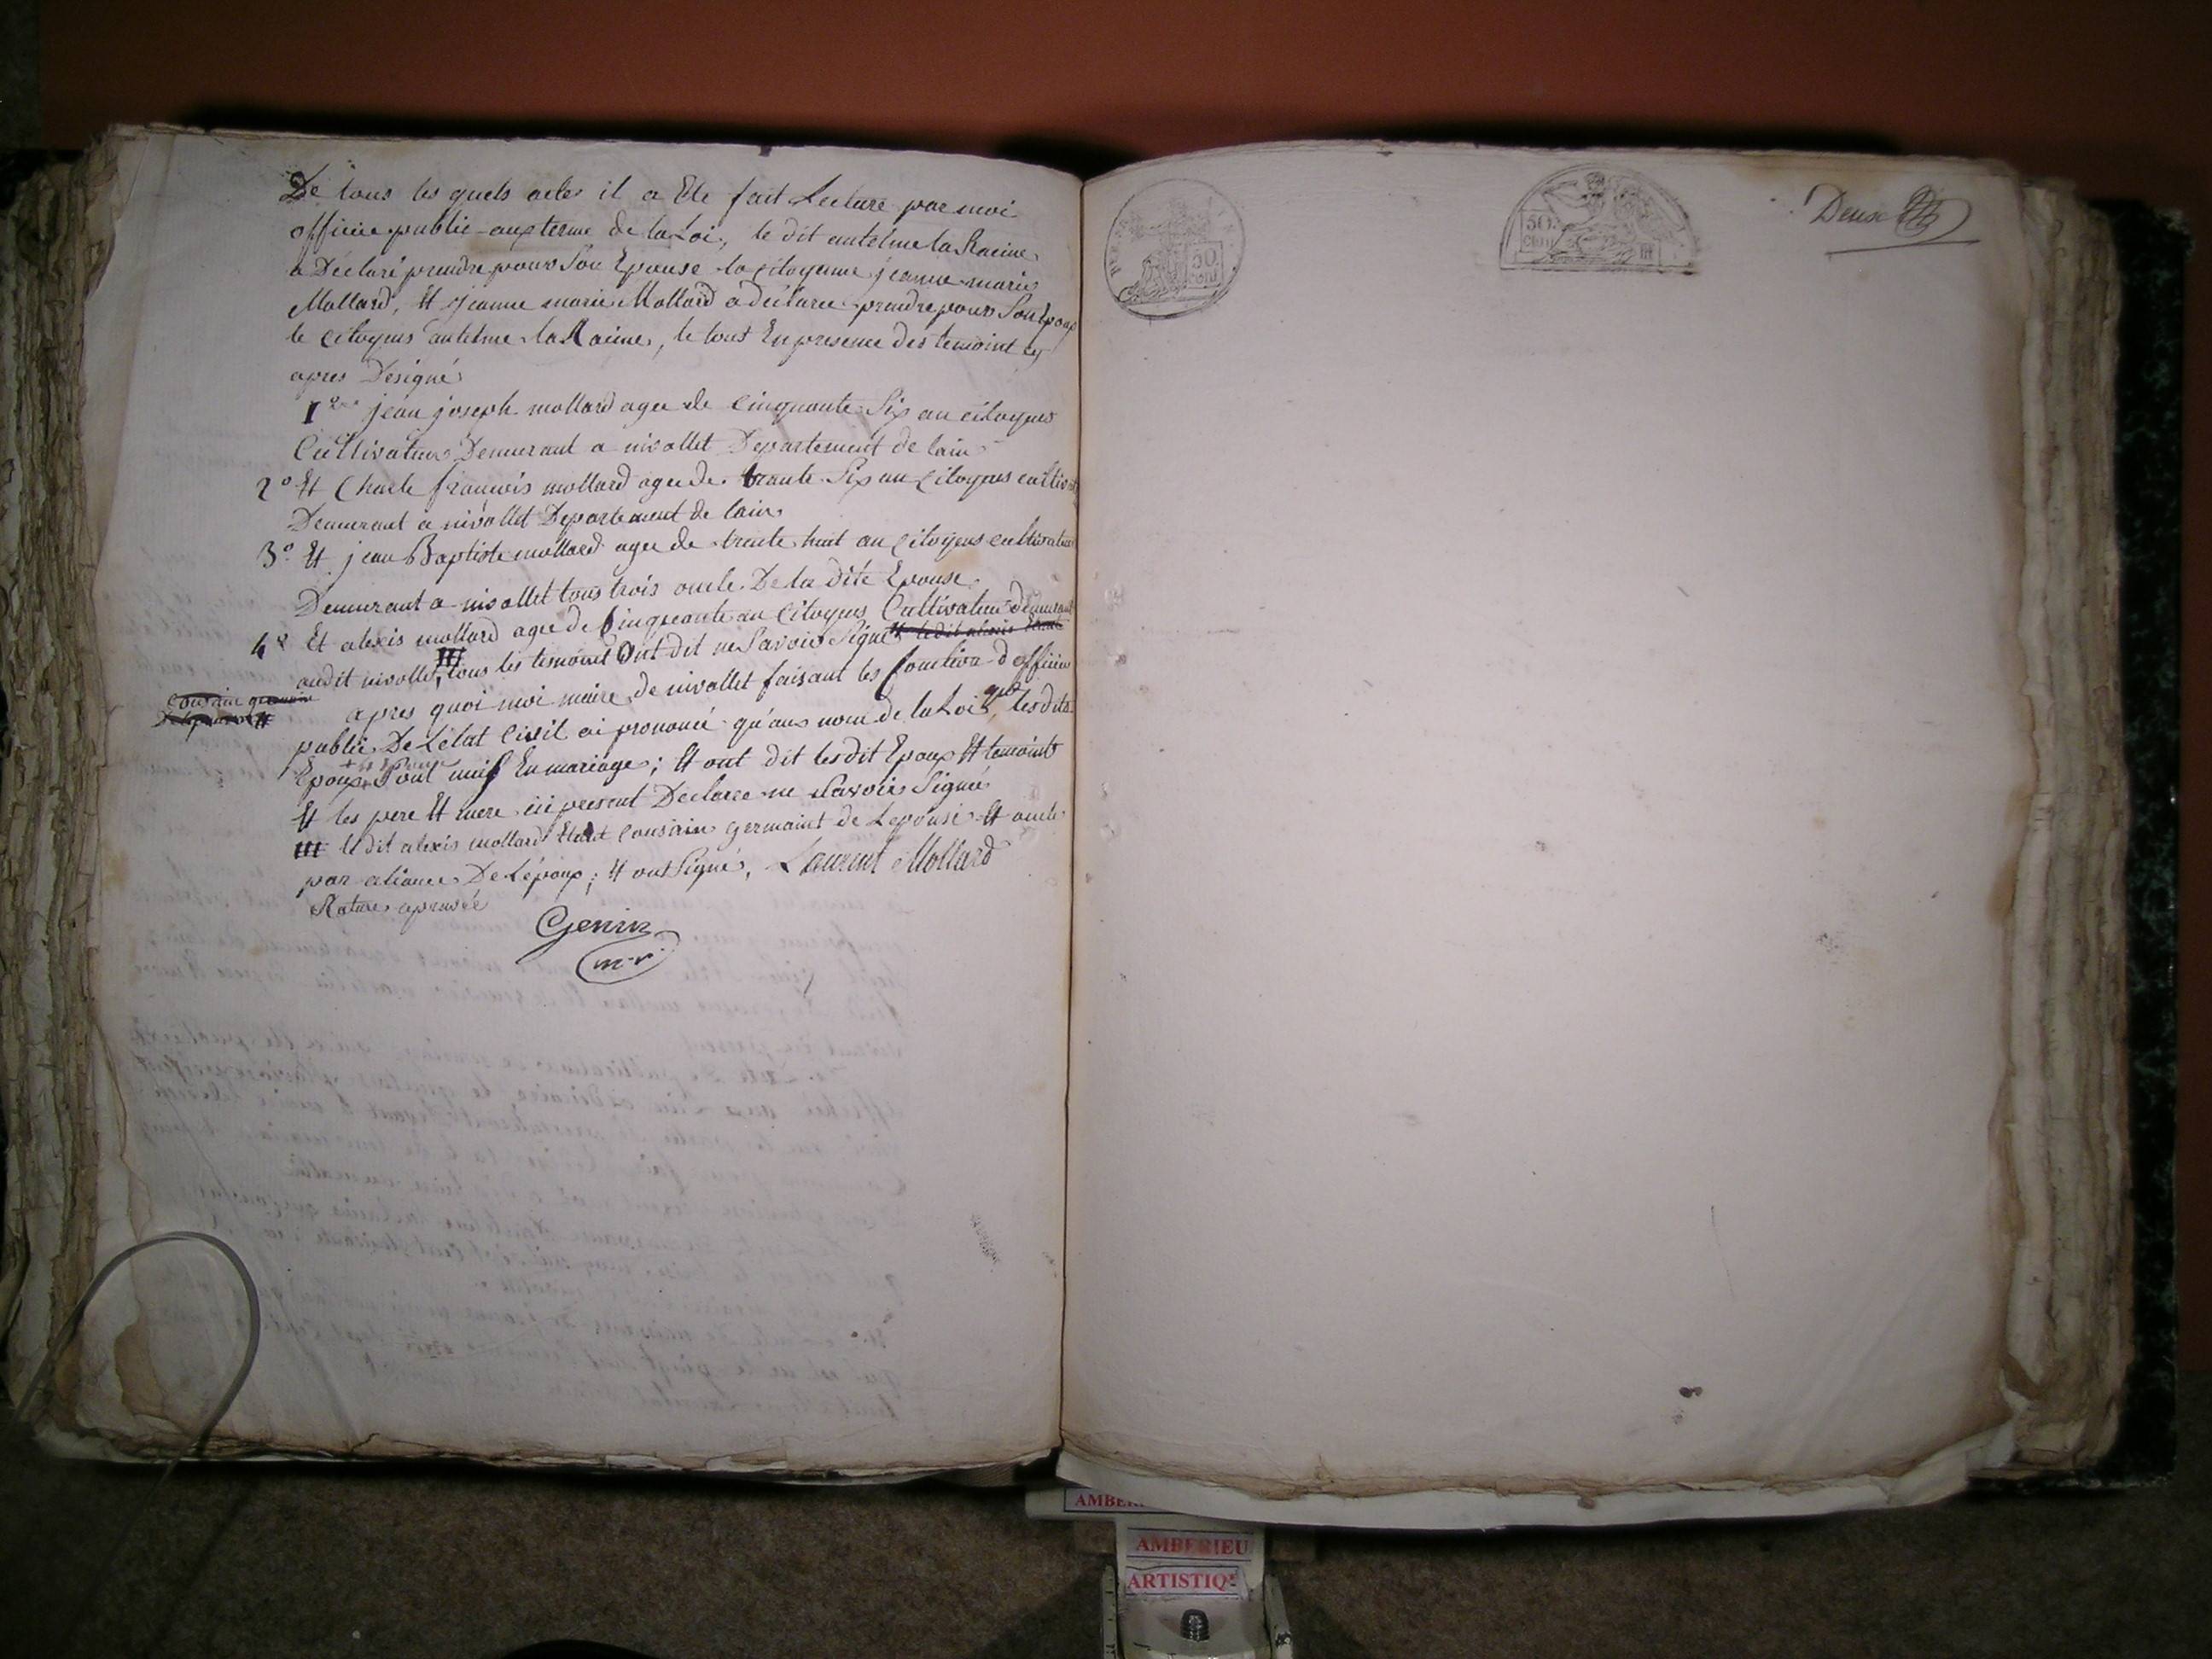 De tous les quels actes il a Ete fait Lecture par moi
officier public aux terme de la Loi, le dit antelme la Racine
a Déclaré prendre pour Son Epouse la citoyenne jeanne marie
Mollard, Et jeanne marie Mollard a déclaree prendre pour Son Epoux
le citoyens antelme la Racine, le tout En presence des temoint cy
apres Designé
1er jean joseph mollard agee de Cinquante Six an citoyens
Cultivateur Demeurant a nivollet Departement de lain
2° Et Charle francois mollard agee de trante Six an citoyens cultivat
Demeurant a nivollet Departement de lain
3° Et jean Baptiste mollard agee de trente huit an citoyens cultivateur
Demeurant a nivollet tous trois oncle De la dite Epouse
4e Et alexis mollard agee de Cinquante an Citoyens Cultivateur demeurant
audit nivollet, tous les temoint Ont dit ne Savoir Signé Et ledit alexis Etant
cousain germain
De lepouse Et
apres quoi moi maire de nivollet faisant les fonction d officier
public De Létat Civil ai prononcé qu'aux nom de la Loi que les dits
Epoux Sont unis En mariage; Et ont dit lesdit Epoux Et temoints
Et les pere Et mere ici present Declaree ne Savoir Signé
le dit alexis mollard Etant Cousain germaint de Lepouse Et oncle
par aliance De Lépoux; Et ont Signé, Laurent Mollard
Rature aprouvée
Genin
m-r
50.
cent
50.
cent
Deux
AMBERIEU
ARTISTIQ